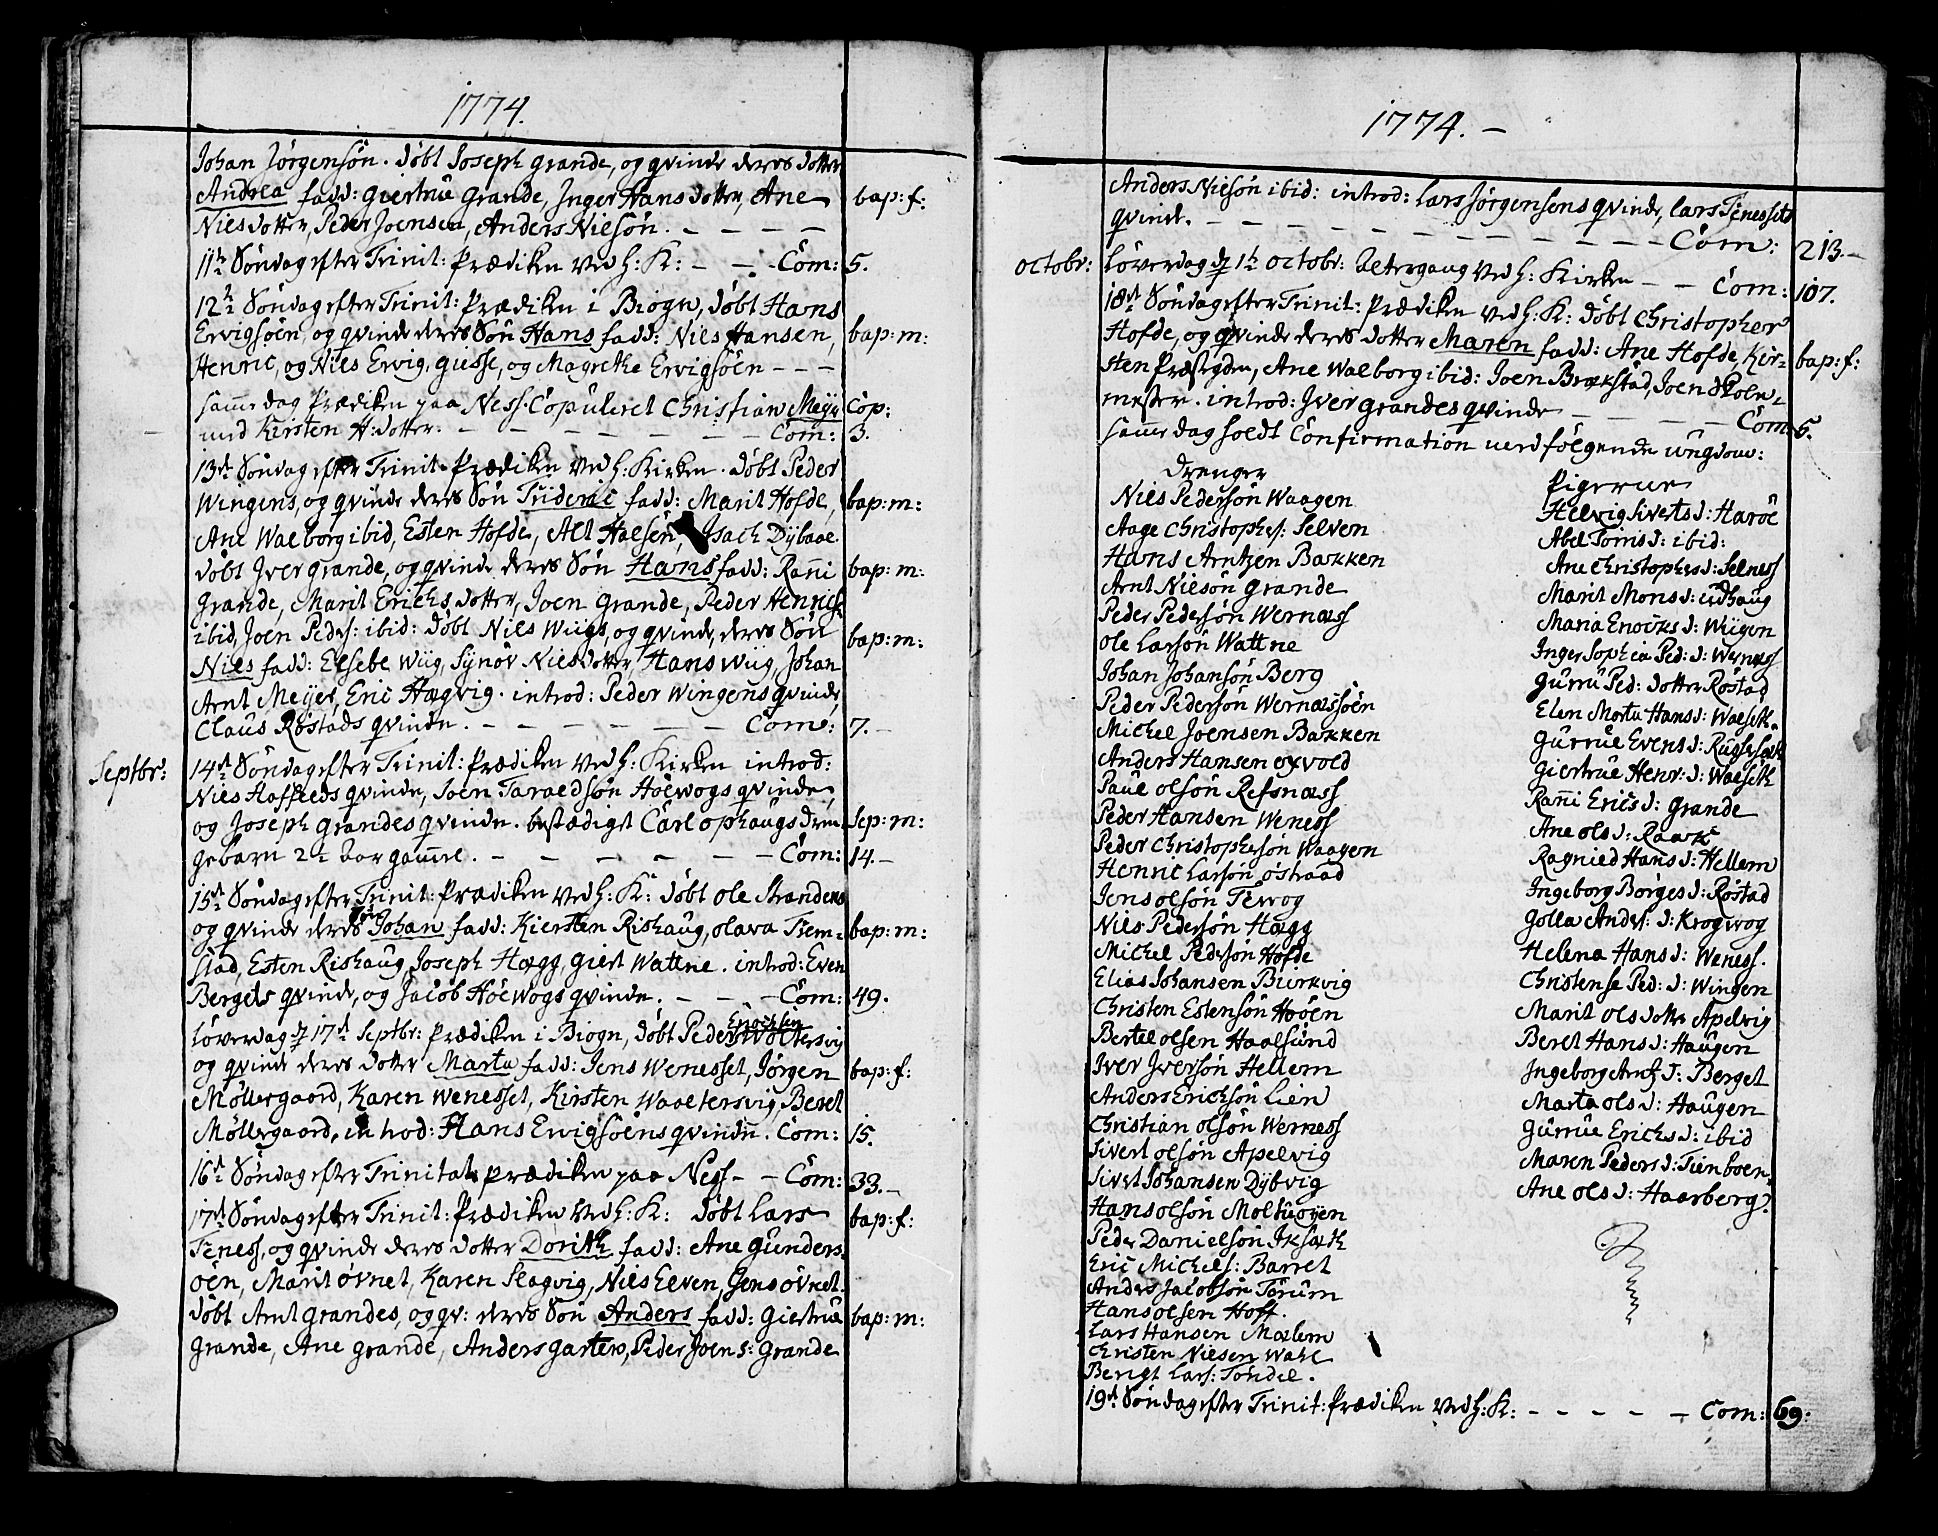 1774.
Johan Jørgensøn. døbt Joseph grande, og qvinde deres dotter
Andrea fadd: giertrüe grande, Inger Hans dotter, Ane bap: f:
Niels dotter, Peder Joensen, Anders Nielsøn. – – – –
11te Søndag efter Trinit: Prædiken ved H: K: – – Com: 5.
12te Søndag efter Trinit: Prædiken i Biogn, døbt Hans
Ervigsøen, og qvinde deres Søn Hans fadd: Niels Hansen, bap: m:
Henric, og Niels Ervig, gusse, og Magrethe Ervigsøen – – –
samme dag Prædiken paa Ness. Copuleret Christian Meyer Cop:
med Kersten H: dotter. – – – – – – Com: 3.
13de Søndag efter Trinit. Prædiken ved H: Kirken. døbt Peder
Wingens, og qvinde deres Søn Frideric fadd: Marit Hofde, bap: m:
Ane Walborg ibid, Esten Hofde, Alt Halsen, Isach Dybaae
døbt Iver grande, og qvinde deres Søn Hans fadd: Ranni bap: m:
grande, Marit Erichs dotter, Joen grande, Peder Henrics:
ibid, Joen Peders: ibid: døbt Niels Wiigs, og qvinde, deres Søn bap: m:
Niels fadd: Elsebe Wiig, Synøv Niels dotter, Hans Wiig, Johan
Arnt Meyer, Eric Hægvig. introd: Peder Wingens qvinde,
Claus Røstads qvinde. – – – – – Com: 7.–
Septbr: 14de Søndag efter Trinit: Prædiken ved H: Kirken introd:
Niels Hoffleds qvinde, Joen Taraldsøn Høewogs qvinde,
og Joseph grandes qvinde. bestædiget Carl Ophaugs dren- Sep: m:
gebarn 2½ aar gammel. – – – – – Com: 14.–
15de Søndag efter Trinit: Prædiken ved H: K: døbt Ole Strandens
og qvinde deres Søn Johan fadd: Kiersten Rishaug, Olava Tiem- bap: m:
stad, Esten Rishaug, Joseph Hægg, giert Wattne. introd: Even
Bergets qvinde, og Jacob Høewogs qvinde. – – – Com: 49.
Løverdag d 17de Septbr: Prædiken i Biogn, døbt Peder Enochsen
og qvinde deres dotter Marta fadd: Jens Wenesset, Jørgen bap: f:
Møllergaard, Karen Wenesset, Kirsten Waaltersvig, Beret
Møllergaard, introd: Hans Ervigsøens qvinde. Com: 15.
16de Søndag efter Trinitatis prædiken paa Ness – – Com: 33.–
17de Søndag efter Trinit: Prædiken ved H: K: døbt Lars bap: f:
Teness, og qvinde deres dotter Dorith fadd: Ane Gunders-
øen, Marit Øvnet, Karen Slagvig, Niels Elven, Jens Øvnet.
døbt Arnt grandes, og qv: deres Søn Anders fadd: Giertrüe bap: m:
grande, Ane grande, Anders Garten, Peder Joens: grande
1774. –
Anders Nielsøn ibid: introd: Lars Jørgensens qvinde, Lars Tenessets
qvinde. – – – – – – – – – – – Com: 213.–
Octobr: Løverdag d 1te Octobr: altergang ved H: Kirken – – Com: 107.
18de Søndag efter Trinit: Prædiken ved H: K: døbt Christopher
Hofde, og qvinde deres dotter Maren fadd: Ane Hofde, Kir- bap: f:
sten Præstgden, Ane Walborg ibid: Joen Brækstad, Joen Skole-
mester. introd: Iver grandes qvinde – – – Com: 5.
samme dag holdt Confirmation med følgende ungdom:
drenger
Niels Pedersøn Waagen
Aage Christophes: Selven
Hans Arntzen Bakken
Arnt Nielsøn grande
Peder Pedersøn Wernæss
Ole Larsøn Wattne
Johan Johansøn Berg
Peder Pedersøn Wernæssøen
Michel Joensen Bakken
Anders Hansen Oxvold
Paul Olsøn Refsnæss
Peder Hansen Weness
Peder Christophersøn Waagen
Henric Larsøn Østraad
Jens Olsøn Tewog
Niels Pedersøn Hægg
Michel Pedersøn Hofde
Elias Johansen Biørkvig
Christen Estensøn Høøen
Bertel Olsen Haalsund
Iver Iversøn Hellem
Anders Ericksøn Lien
Christian Olsøn Werness
Sivert Olsøn Apelvig
Sivert Johansen Dybvig
Hans Olsøn Moltuøyen
Peder Danielsøn Iksæth
Eric Michels: Barret
Anders Jacobsøn Tørum
Hans Olsen Hoff.
Lars Hansen Mælem
Christen Nielsen Wahl
Bengt Lars: Tøndel.
Pigerne
Helvig Siverts d: Harøe
Abel Toms d: ibid:
Ane Christophers d: Selness
Marit Mons d: udhaug
Maria Enocks d: Wiigen
Inger Sophia Ped: d: Wernæss
Gurru Ped: dotter Røstad
Elen Marta Hans d: Walseth
Gurrue Evens d: Rugsæth
Giertrue Henr: d: Walseth
Ranni Erics d: grande
Ane Ols d: Raark
Ragnied Hans d: Hellem
Ingeborg Børges d: Rostad
Golla Anders: d: Krogwog
Helena Hans d: Weness.
Christense Ped: d: Wingen
Marit Ols dotter Apelvig
Beret Hans d: Haugen
Ingeborg Arntz d: Berget
Marta Ols d: Haugen
Gurrue Erichs d: ibid
Maren Peders d: Tienboen
Ane Ols d: Haarberg
19de Søndag efter Trinit: Prædiken ved H: K: – – – – – Com: 69: